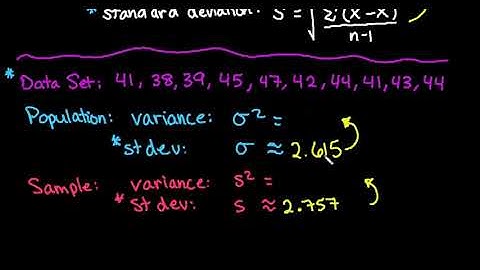 * standard deviation: s = √ Σ(x-x̄)² / n-1
* Data Set: 41, 38, 39, 45, 47, 42, 44, 41, 43, 44
Population: variance: σ² =
* st dev: σ ≈ 2.615
Sample: variance: s² =
* st dev: s ≈ 2.757